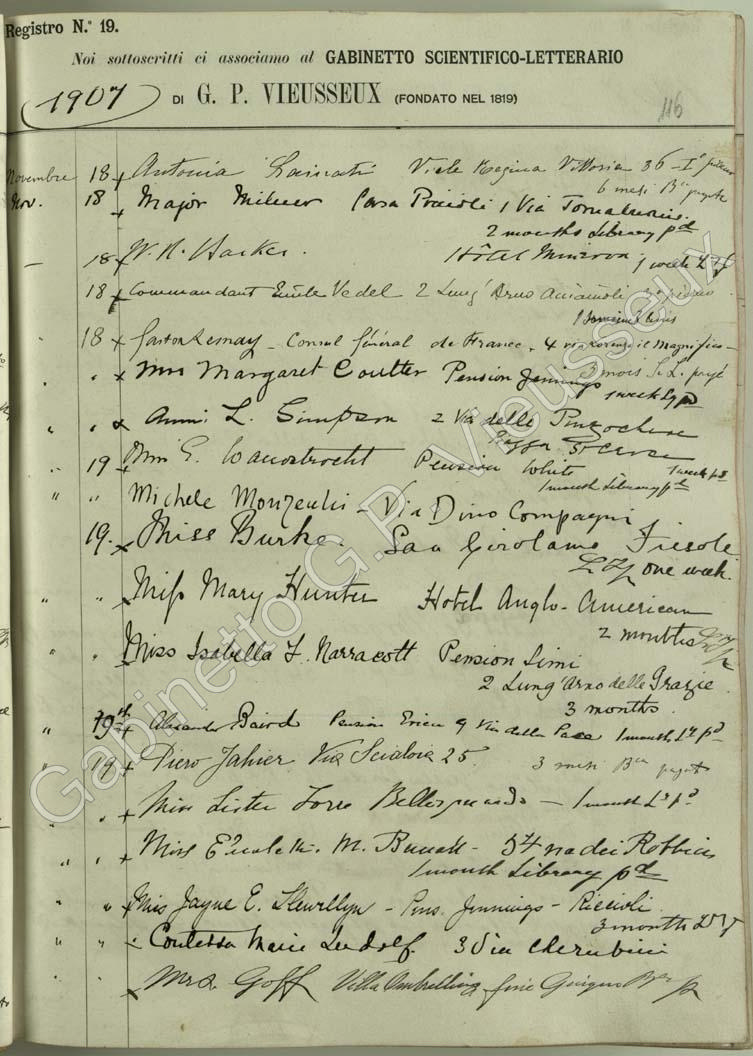 Registro N.º 19.
Noi sottoscritti ci associamo al GABINETTO SCIENTIFICO-LETTERARIO
1907 DI G. P. VIEUSSEUX (FONDATO NEL 1819)
116
Novembre 18 Antonia Viale Regina Vittoria 36 - Iº
6 mesi
Nov. 18 Major Milner Casa 1 Via Tornabuoni
2 months Library pd
— 18 W. H. Harker. Hôtel Minerva 1 week
18 Commandant Emile Vedel 2 Lung' Arno Acciaiuoli
18 Gaston Lemay - Consul Général de France - 4 via Lorenzo il Magnifico -
3 mois payé
" Mrs Margaret Coutter Pension Jennings
1 week pd
" " L. Simpson 2 Via delle Pinzochere
Piazza St Croce
1 week pd
19 G. Wanostrocht Pension White
1 month Library pd
" " Michele - Via Dino Compagni
19. Miss Burke. San Girolamo Fiesole
one week.
" " Miss Mary Hunter Hotel Anglo-American
2 months
" " Miss Isabella F. Narracott Pension Simi
2 Lung' Arno delle Grazie
3 months.
" 19th Alexander Baird Pension 9 Via della Pace 1 month pd
" 19 Piero Jahier Via Scialoia 25. 3 mesi
" Miss Lister Torre Bellosguardo - 1 month pd
" " Miss M. - 54 via dei Robbia
1 month Library pd
" " Miss Jayne E. Llewellyn - Pens. Jennings - Riccioli
3 months
" " Contessa Marie Ludolf. 3 Via Cherubini
" " Mrs. Goff Villa
Gabinetto G.P. Vieusseux